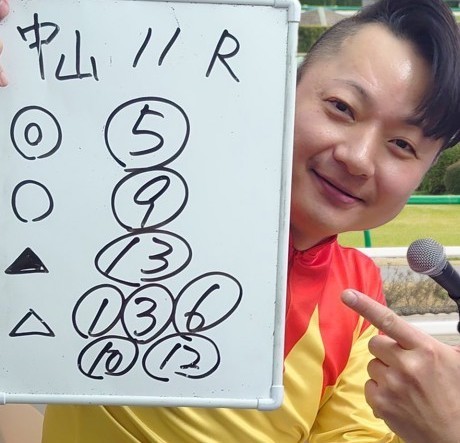 中山 11 R
◎ ⑤
○ ⑨
▲ ⑬
△ ① ③ ⑥
⑩ ⑫